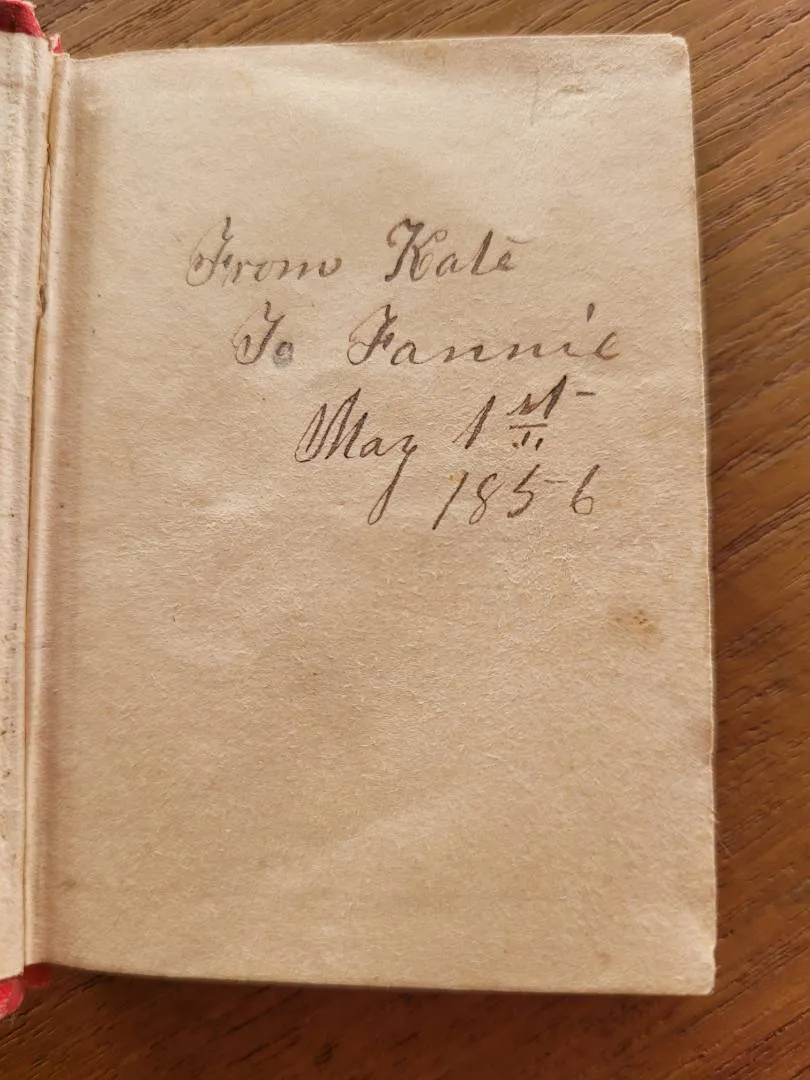 From Kate
To Fannie
May 1st
1856